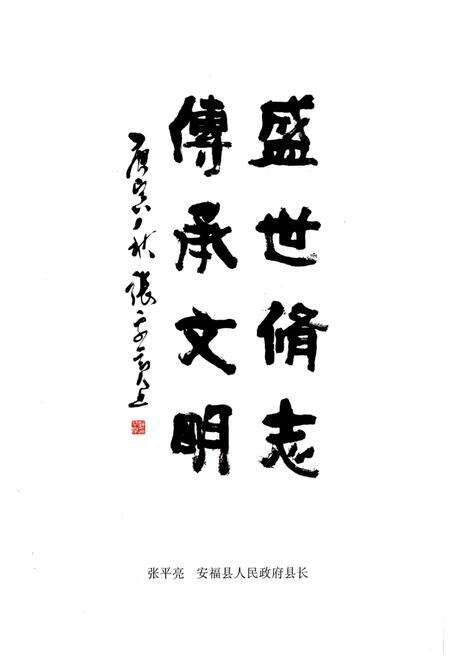 盛世脩志
傳承文明
庚寅秋 張平亮
张平亮 安福县人民政府县长